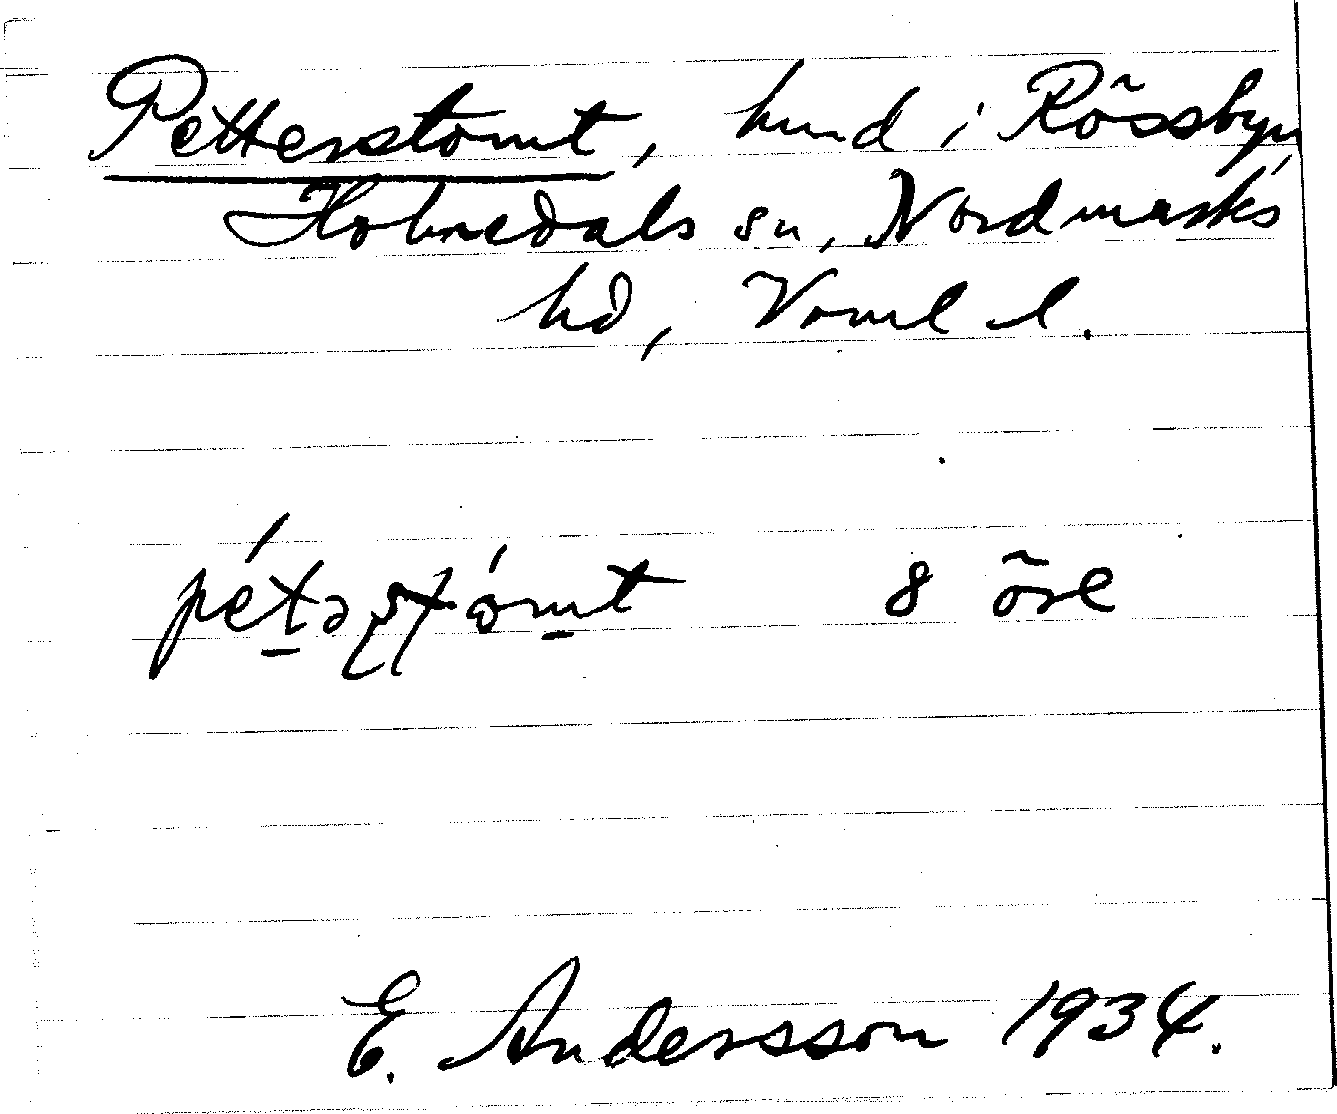 Petterstomt, hmd i Rössbyn,
Holmedals sn, Nordmarks
hd, Verml l.
pét̠əʂʈómt 8 öre
E. Andersson 1934.